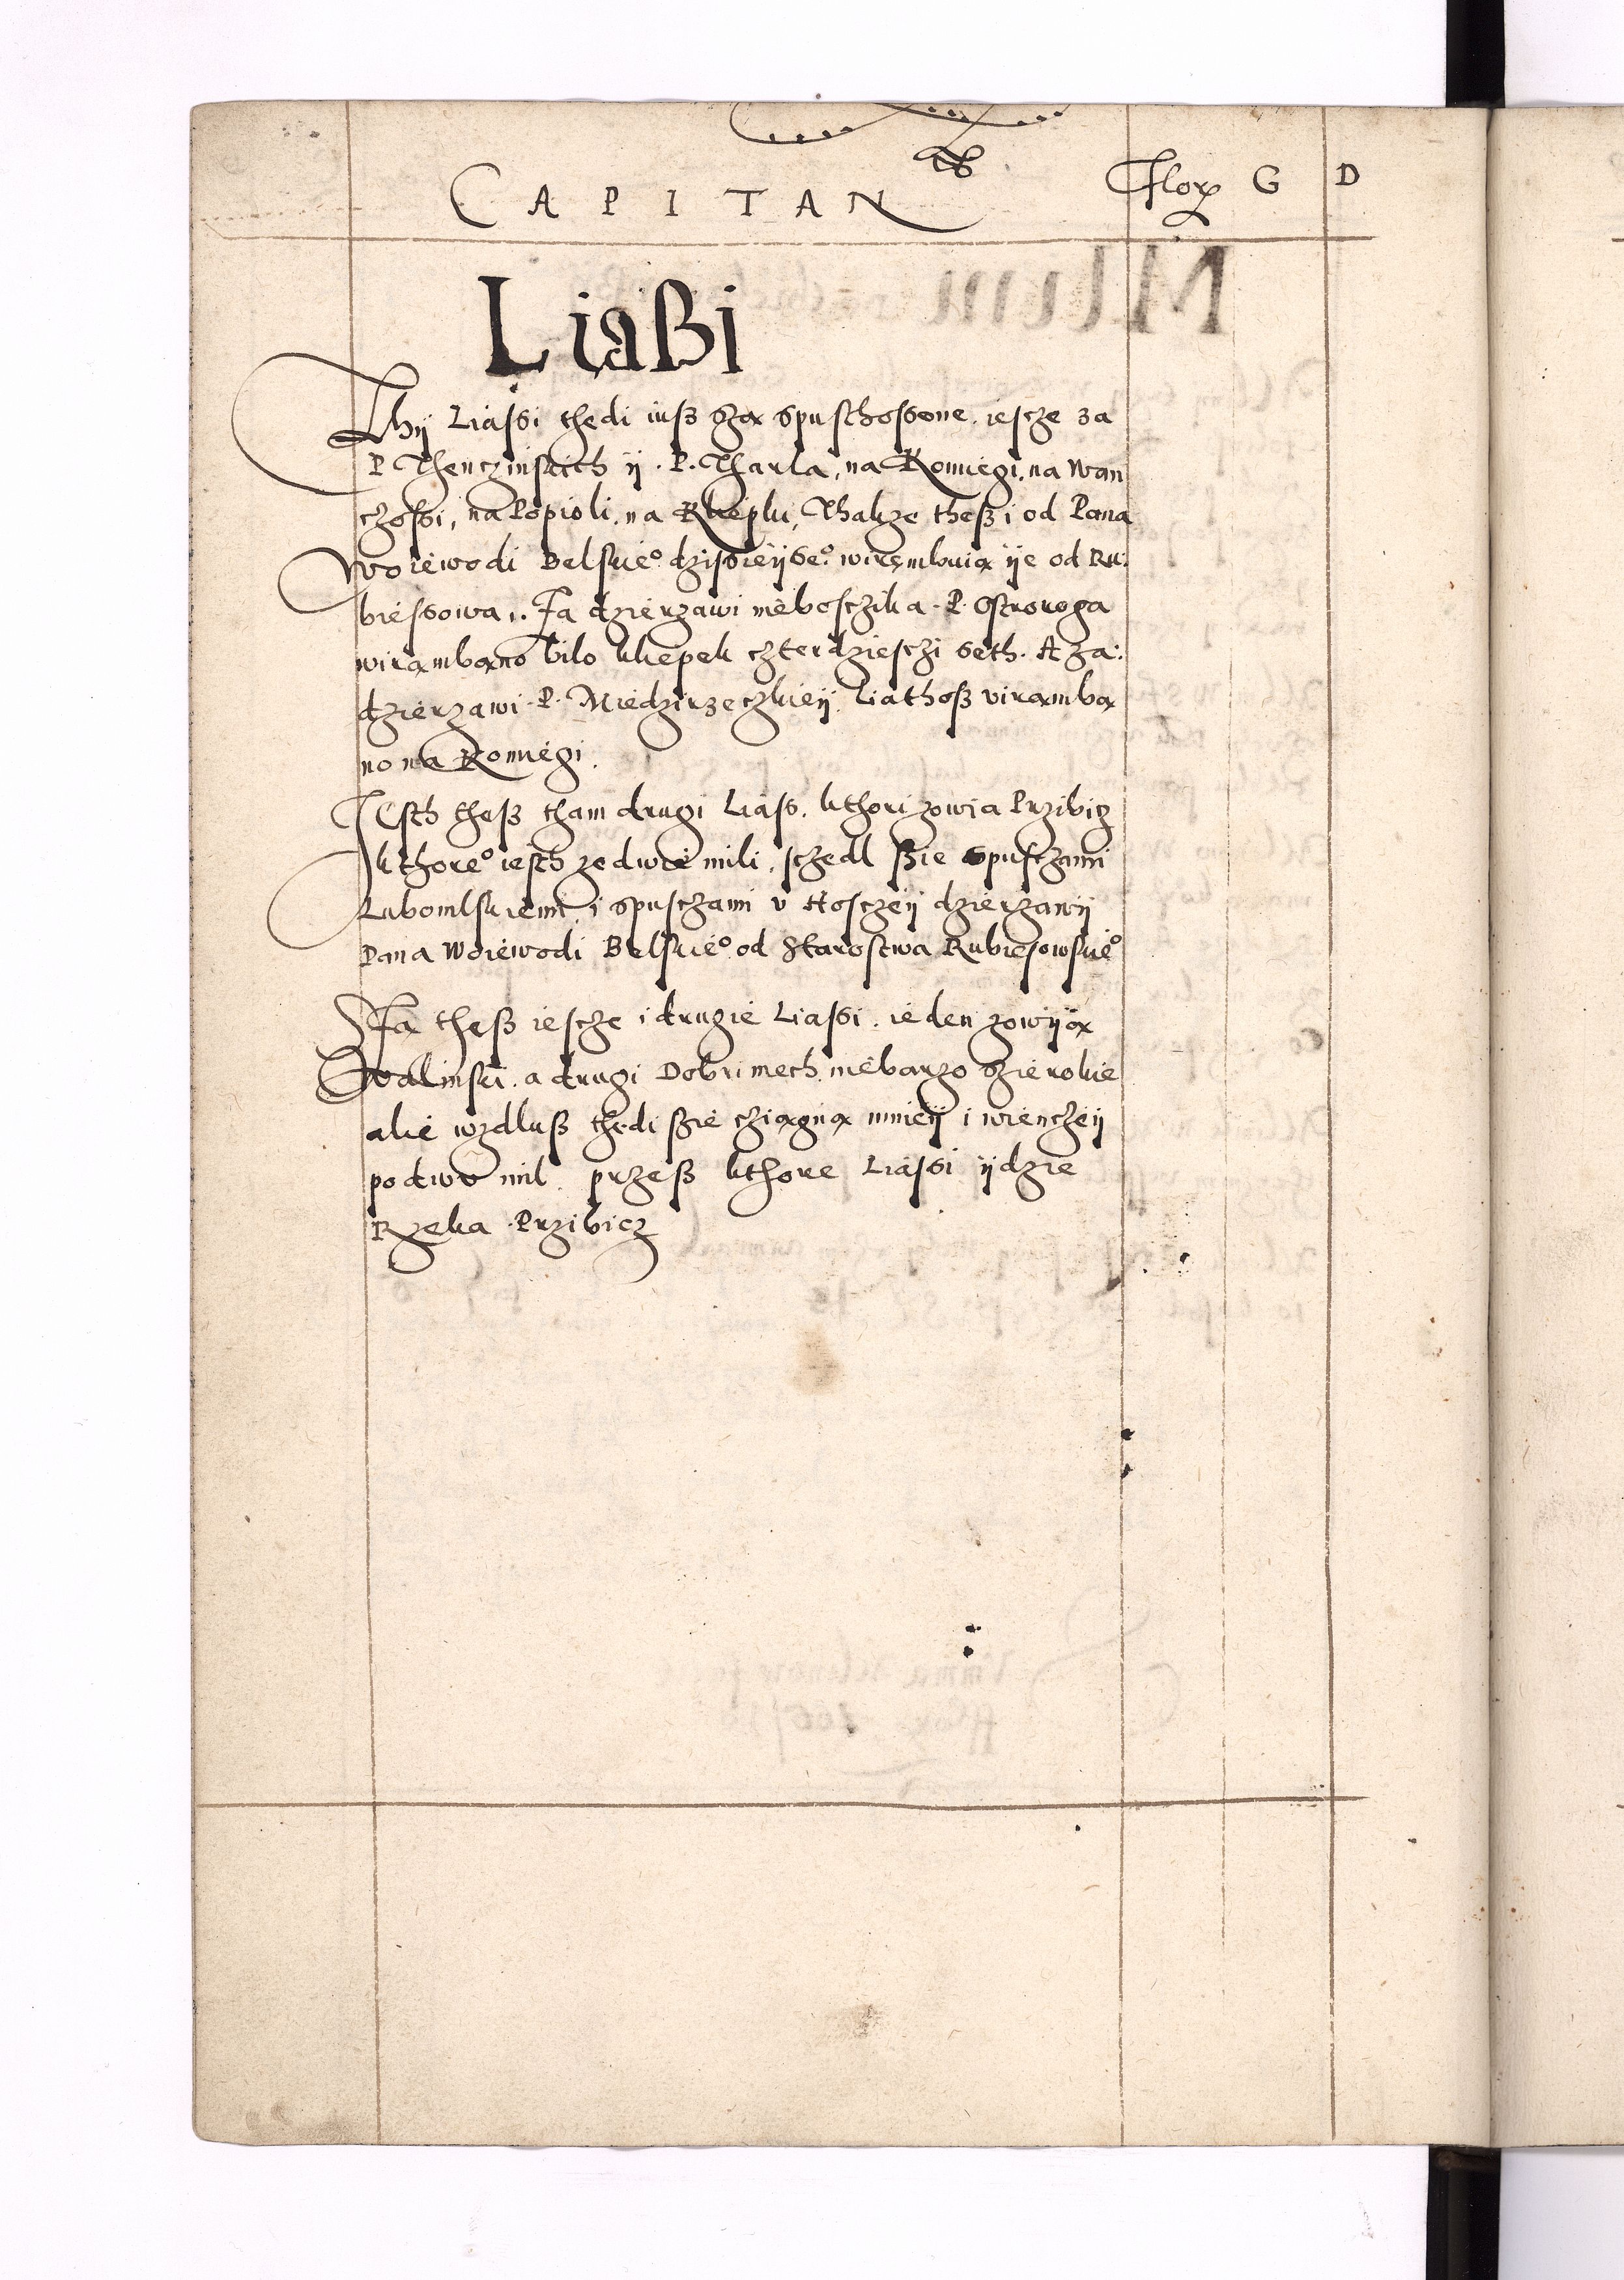 CAPITANTS Flor G D
Liaßi
Thÿ Liassi thedi iusz sza̧ spusthossone, iescze za
P Thenczinskich ÿ P. Tharla, na Komiegi, na Wan
czossi, na Popioli, na Kliepki, Thakze thesz i od Pana
Woiewodi Belskieº dzissieÿseº wirembuia̧ ÿe od Ru:
biessowa, Za dzierzawi niebosczika P. Ostroroga
wira̧mba̧no bilo kliepek czterdziesczi seth. A za:
dzierzawi P. Miedzirzeczkieÿ, liathosz vira̧mba̧
no na Komiegi.
Iesth thesz tham drugi Liass, kthori zowia Przibicz
kthoreº iesth ze dwie mili, schedl szie spusczami
Lubomlskiemi, i spusczami v Hosczeÿ dzierzawÿ
Pana Woiewodi Belskieº od Starostwa Rubiesowskieº
Sza̧ thesz iescze i drugie Liassi, ieden zowÿa̧
Wolinski, a drugi Dobri mech, niebarzo szierokie
alie wzdlusz thedi szie czia̧gna̧ mnieÿ i wienczeÿ
po dwv mil, przesz kthore Liassi ÿdzie
Rzeka Przibicz